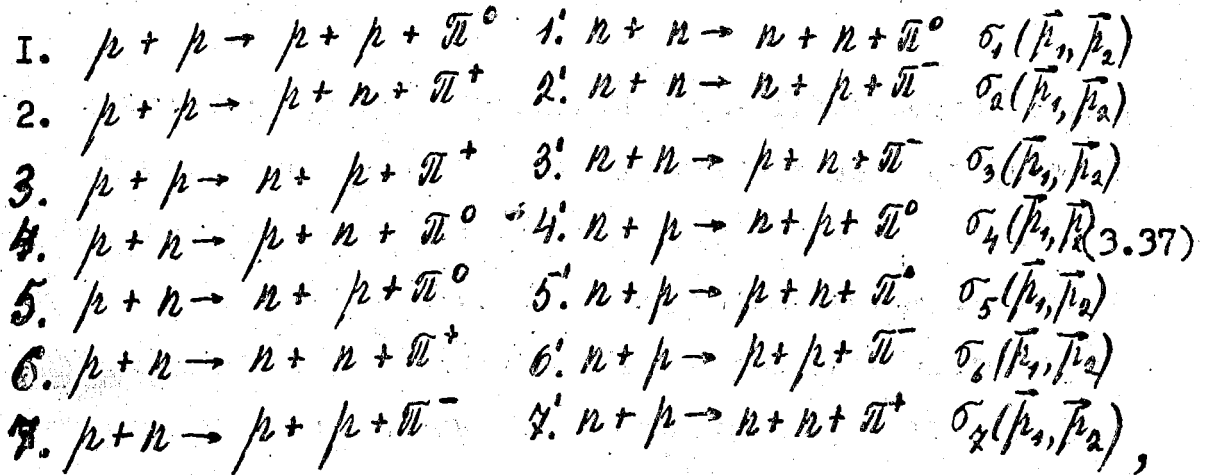 I. p + p → p + p + π⁰ 1'. n + n → n + n + π⁰ σ₁(p⃗₁, p⃗₂)
2. p + p → p + n + π⁺ 2'. n + n → n + p + π⁻ σ₂(p⃗₁, p⃗₂)
3. p + p → n + p + π⁺ 3'. n + n → p + n + π⁻ σ₃(p⃗₁, p⃗₂)
4. p + n → p + n + π⁰ 4'. n + p → n + p + π⁰ σ₄(p⃗₁, p⃗₂) (3.37)
5. p + n → n + p + π⁰ 5'. n + p → p + n + π⁰ σ₅(p⃗₁, p⃗₂)
6. p + n → n + n + π⁺ 6'. n + p → p + p + π⁻ σ₆(p⃗₁, p⃗₂)
7. p + n → p + p + π⁻ 7'. n + p → n + n + π⁺ σ₇(p⃗₁, p⃗₂),